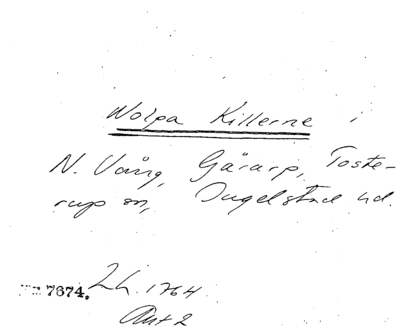 Wolpa Killerne i
N. Vång, Gärarp, Toste-
rup sn, Ingelstad hd.
7674. 1764